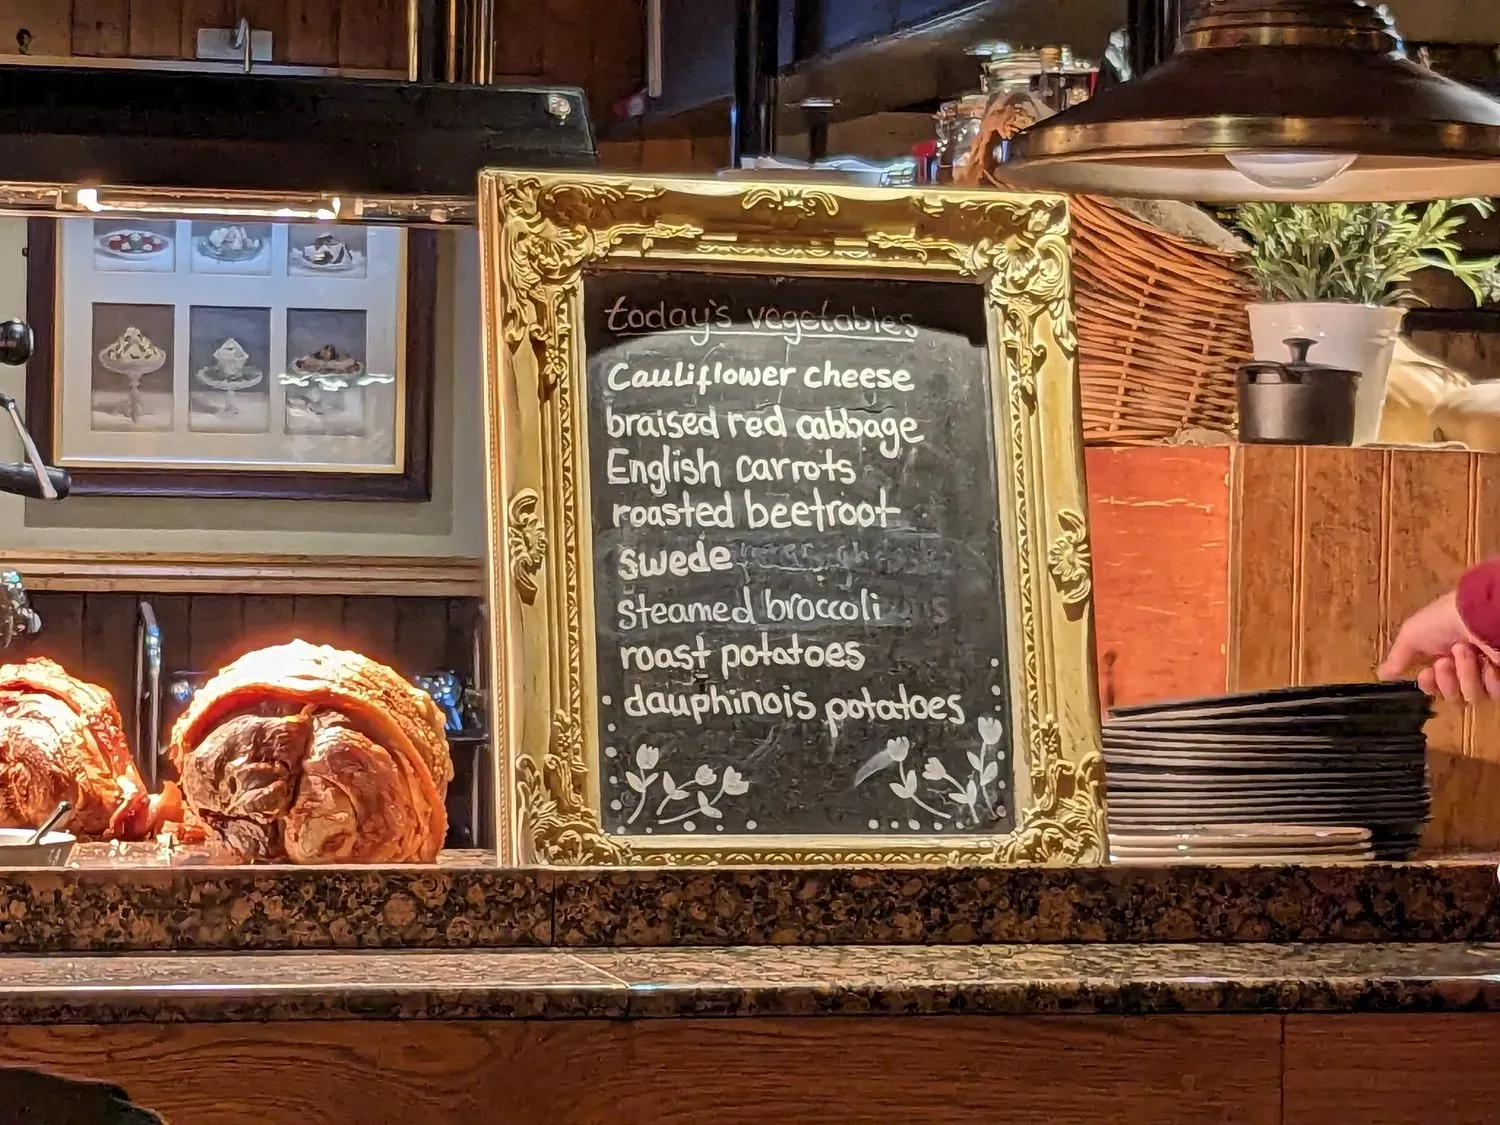 today's vegetables
Cauliflower cheese
braised red cabbage
English carrots
roasted beetroot
swede
steamed broccoli
roast potatoes
dauphinois potatoes